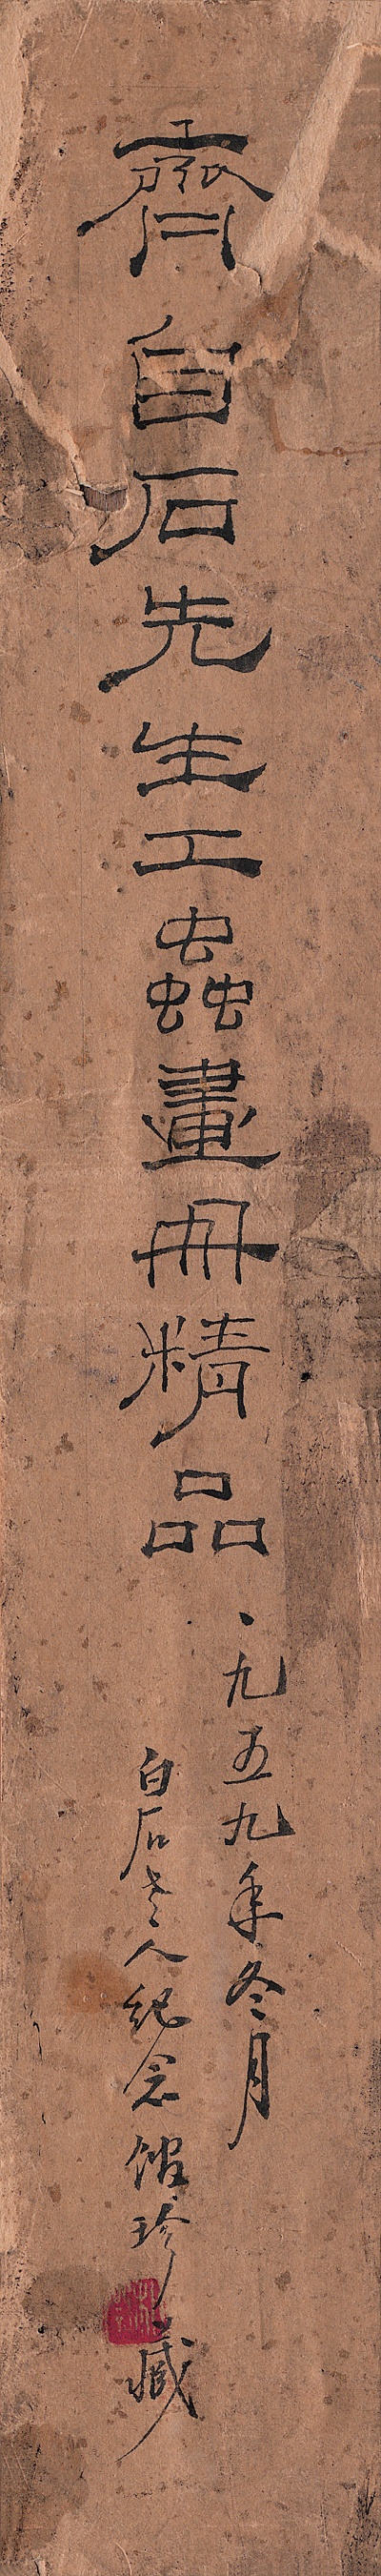 齊白石先生工蟲畫冊精品
一九五九年冬月
白石老人紀念館珍藏